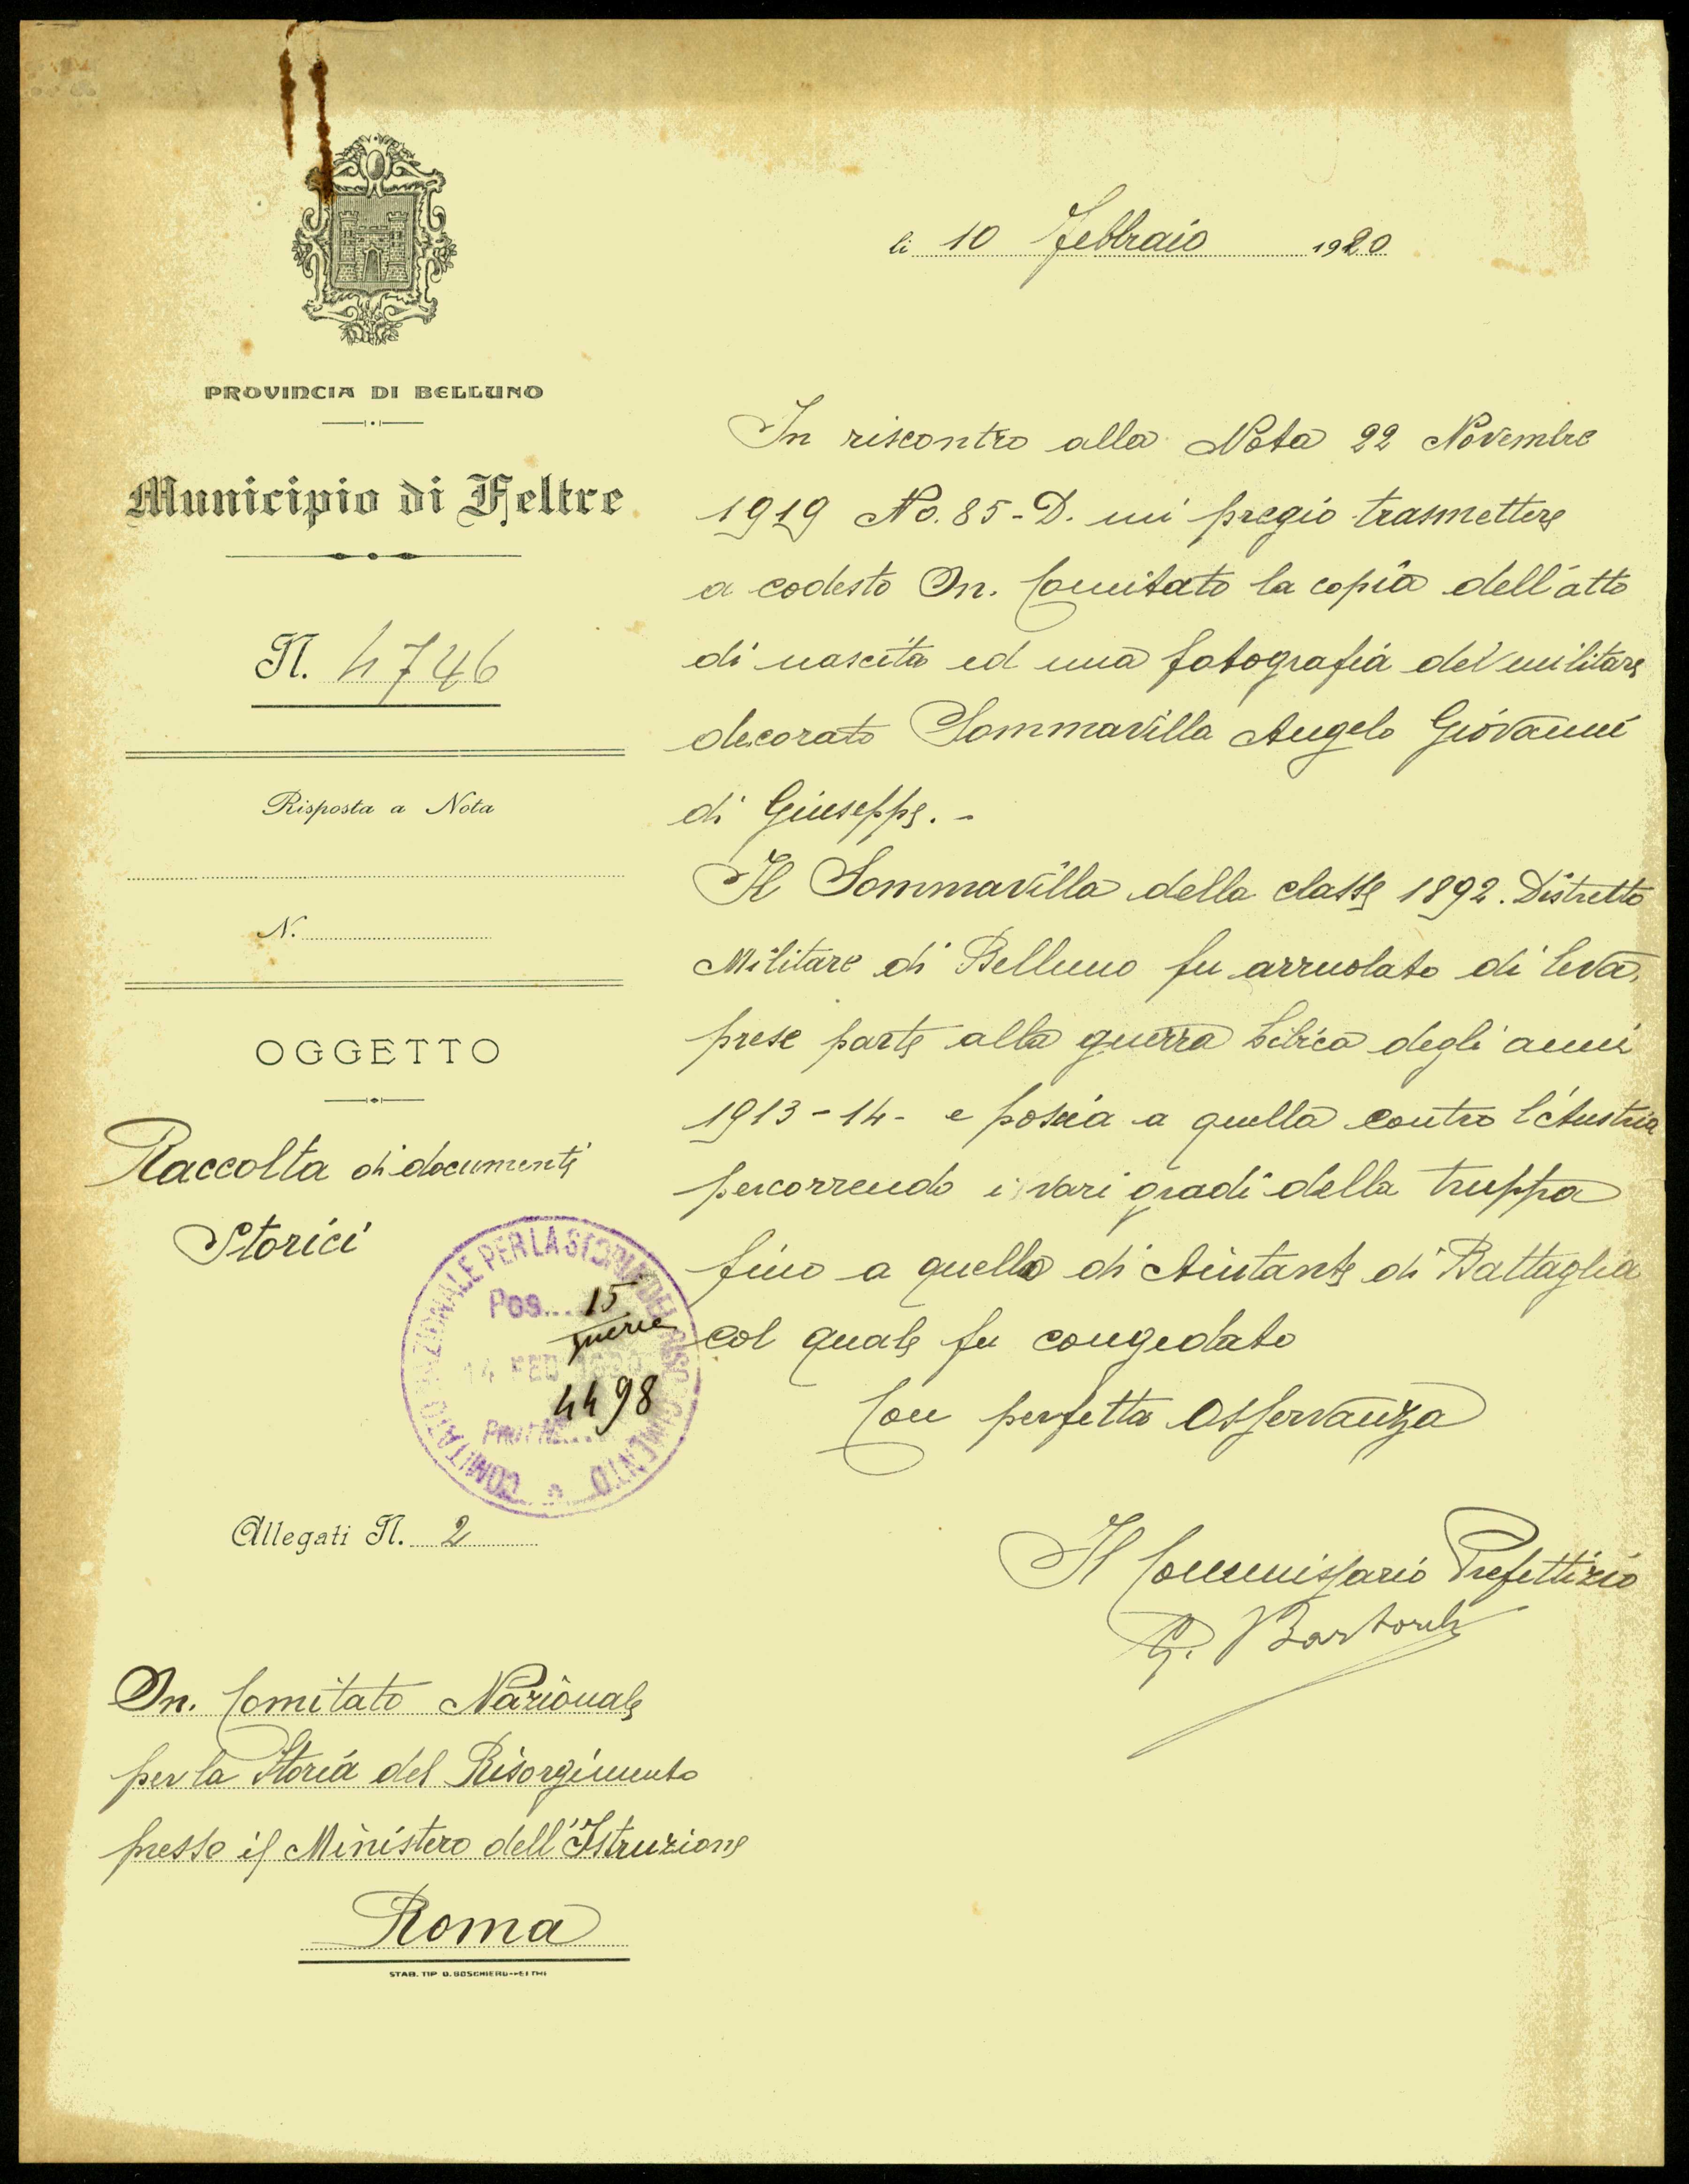 PROVINCIA DI BELLUNO
Municipio di Feltre
N. 4746
Risposta a Nota
N.
OGGETTO
Raccolta di documenti
Storici
COMITATO NAZIONALE PER LA STORIA DEL RISORGIMENTO
Pos... 15
guerra
14 FEB 1920
4498
PROT. No...
Allegati N. 2
On. Comitato Nazionale
per la Storia del Risorgimento
presso il Ministero dell'Istruzione
Roma
STAB. TIP. BOSCHIERO-FELTRE
li 10 Febbraio 1920
In riscontro alla Nota 22 Novembre
1919 No. 85-D. mi pregio trasmettere
a codesto On. Comitato la copia dell'atto
di nascita ed una fotografia del militare
decorato Sommavilla Angelo Giovanni
di Giuseppe. -
Il Sommavilla della classe 1892. Distretto
Militare di Belluno fu arruolato di leva,
prese parte alla guerra Libica degli anni
1913-14- e poscia a quella contro l'Austria
percorrendo i vari gradi della truppa
fino a quello di Aiutante di Battaglia
col quale fu congedato
Con perfetta osservanza
Il Commissario Prefettizio
G.